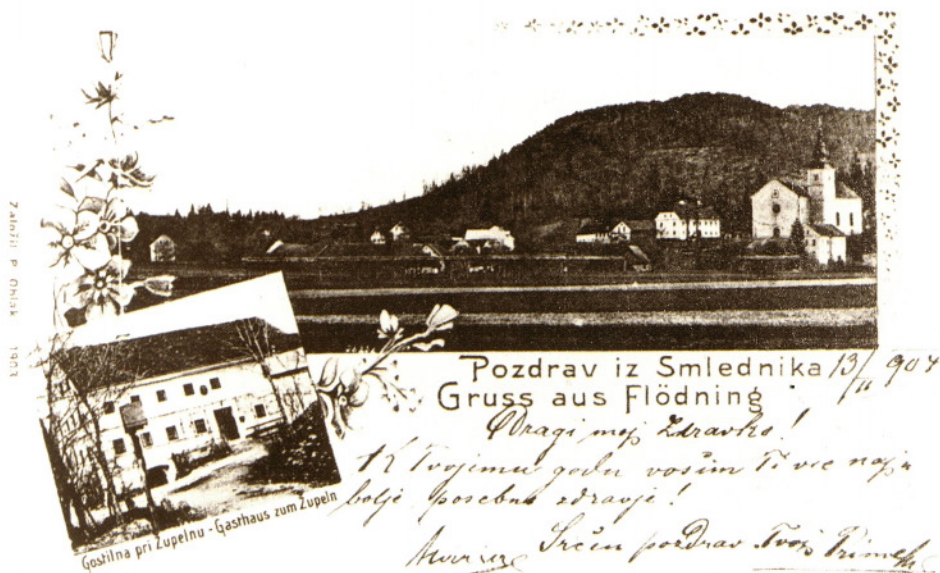 Založil P. Oblak 1903
Pozdrav iz Smlednika 13/11 904
Gruss aus Flödning
Dragi moj Zdravko!
K Tvojimu godu vošim Ti vse naj=
bolje posebno zdravje!
Srčen pozdrav Tvoj
Gostilna pri Zupelnu - Gasthaus zum Zupeln